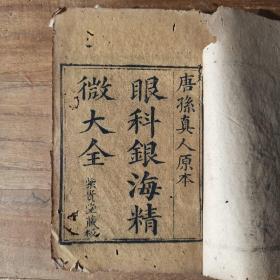 唐孫真人原本
眼科銀海精
微大全